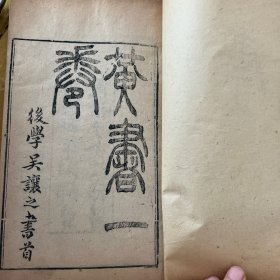 黄書一
卷
後學吴讓之書首